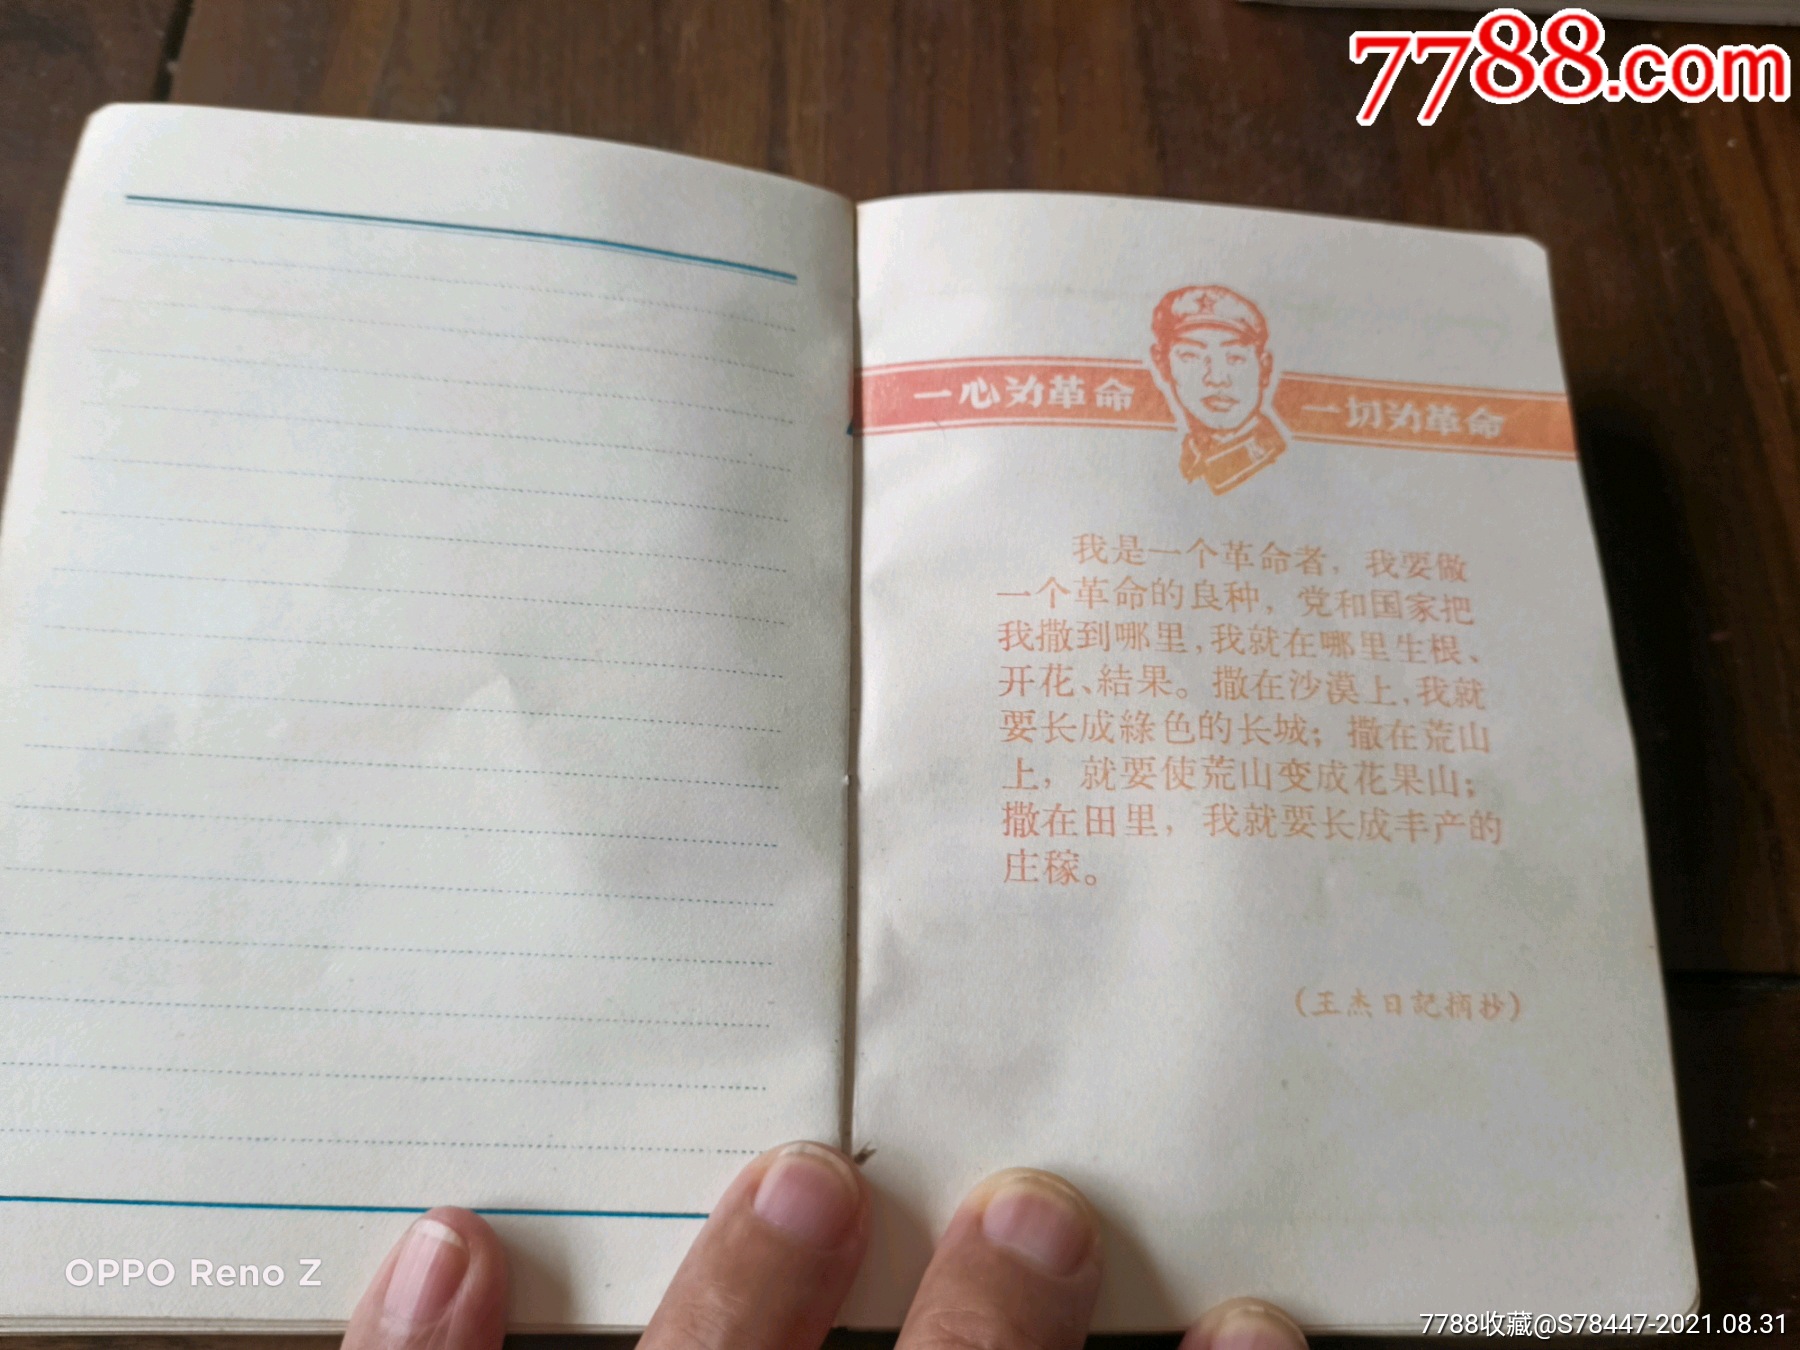 7788.com
一心为革命
一切为革命
我是一个革命者，我要做
一个革命的良种，党和国家把
我撒到哪里，我就在哪里生根、
开花、結果。撒在沙漠上，我就
要长成綠色的长城；撒在荒山
上，就要使荒山变成花果山；
撒在田里，我就要长成丰产的
庄稼。
（王杰日記摘抄）
OPPO Reno Z
7788收藏@S78447-2021.08.31